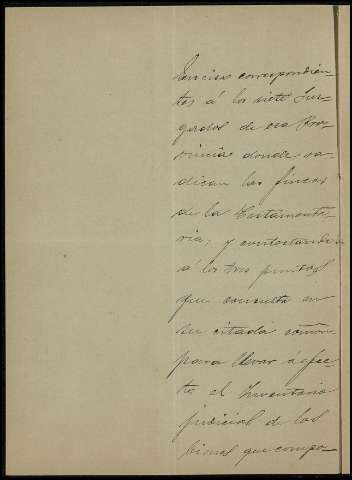 tencias correspondien-
tes á los siete Juz-
gados de esa Pro-
vincia donde ra-
dican las fincas
de la Testamenta-
ria; y contestando
á los tres puntos
que consulta en
su citada comon
para llevar a efec-
to el Inventario
judicial de los
bienes que compo-